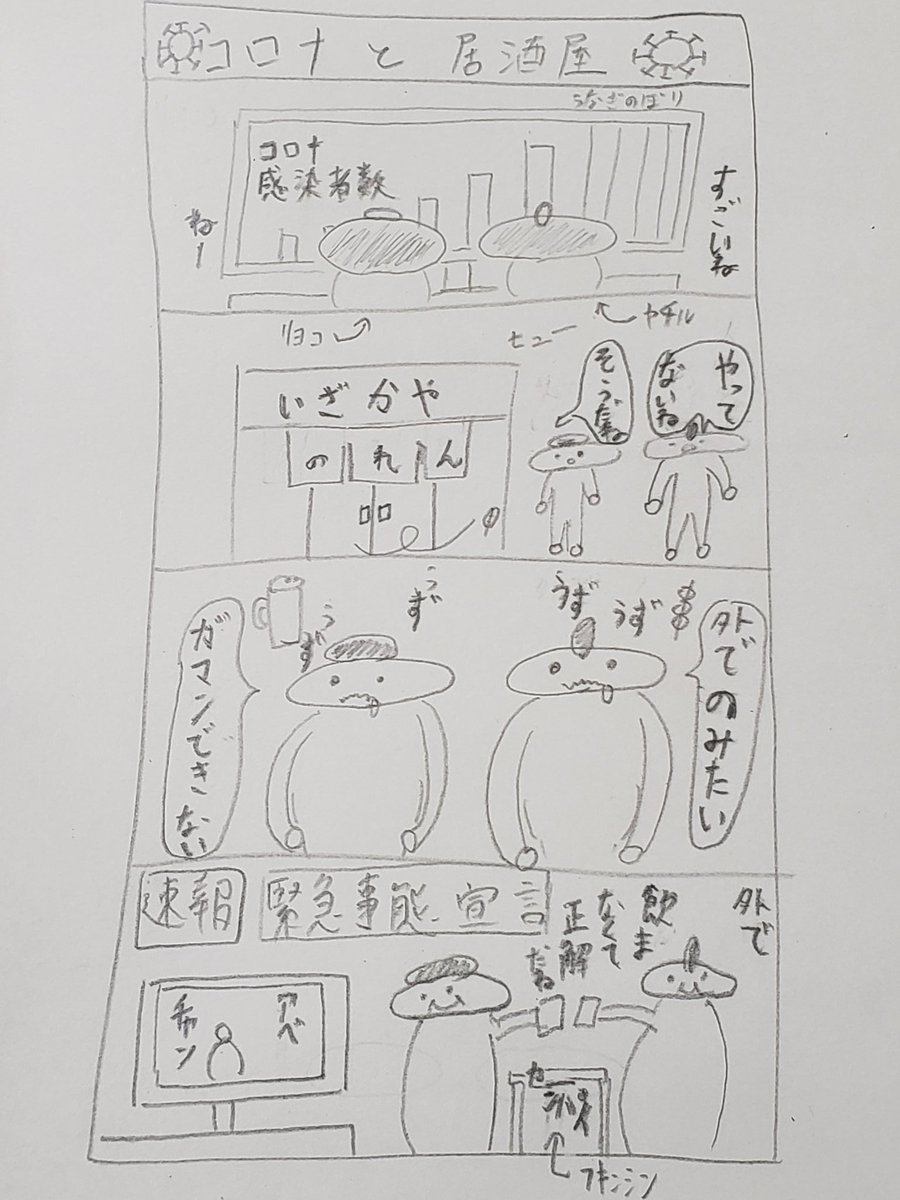 コロナと居酒屋
うなぎのぼり
コロナ
感染者数
すごいね
ねー
ヤチル
リヨコ
ヒュー
いざかや
のれん
やって
ないね
そうだね
外でのみたい
うず
うず
うず
うず
ガマンできない
速報
緊急事態宣言
外で
飲ま
なくて
正解
だね
アベ
チャン
フキンシン